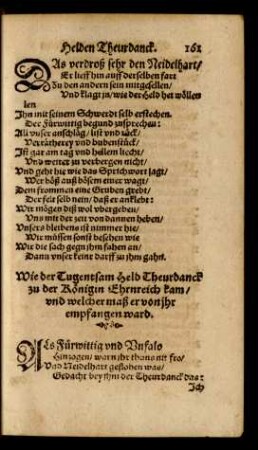 Helden Theurdanck. 161
DAs verdroß sehr den Neidelhart/
Er lieff hin auff derselben fart
Zu den andern sein mitgesellen/
Vnd klagt jn/ wie der Held het wöllen
Jhn mit seinem Schwerdt selb erstechen.
Der Fürwittig begund zusprechen:
All vnser anschläg/ list vnd tück/
Verrätherey vnd bubenstück/
Jst gar am tag vnd hellem liecht/
Vnd weiter zu verbergen nicht/
Vnd geht hie wie das Sprichwort sagt/
Wer böß auff bösem ewer wagt/
Dem frommen eine Gruben grebt/
Der felt selb nein/ daß er anklebt:
Wir mögen diß wol vbergeben/
Vns mit der zeit von dannen heben/
Vnsers bleibens ist nimmer hie/
Wir müssen sonst besehen wie
Wir die sach gegn jhm fahen an/
Dann vnser keiner darff zu jhm gahn.
Wie der Tugentsam Held Theurdanck
zu der Königin Ehrnreich kam/
vnd welcher maß er von jhr
empfangen ward.
ALs Fürwittig vnd Vnfalo
Hinzogen/ warn jhr thans nit fro/
Vnd Neidelhart geflohen was/
Gedacht bey jhm der Theurdanck das:
Jch